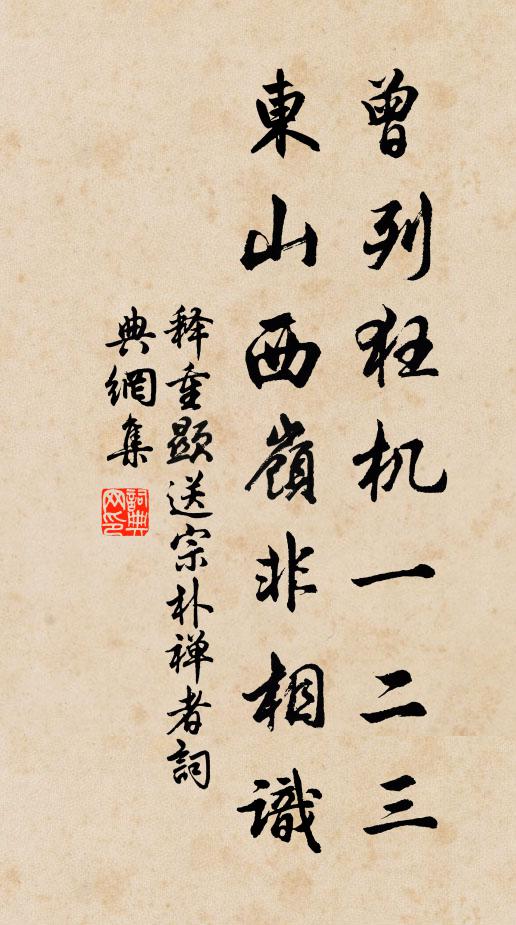 曾列狂机一二三
東山西嶺非相識
释重顯送宗朴禅者詞
典網集
詞典網印